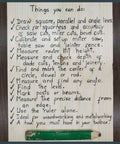 Things you can do:
✓ Draw square, parallel and angle lines.
✓ Check for squareness and accuracy
of saw cuts, miter cuts, bevel cuts.
✓ Calibrate and setup miter saw,
table saw and jointer fence.
✓ Measure router bit height.
✓ Measure and check depth of
dado cuts, tenons and joinery.
✓ Find and mark the center of
a circle, dowel or rod.
✓ Measure
✓ Measure and find any angle.
✓ Find the level.
✓ Mark posts or beams.
✓ Measure the precise distance from
an edge.
✓ Use the Ruler alone.
✓ Ideal for woodworking and metalworking
✓ A tool you must have in your toolbox!